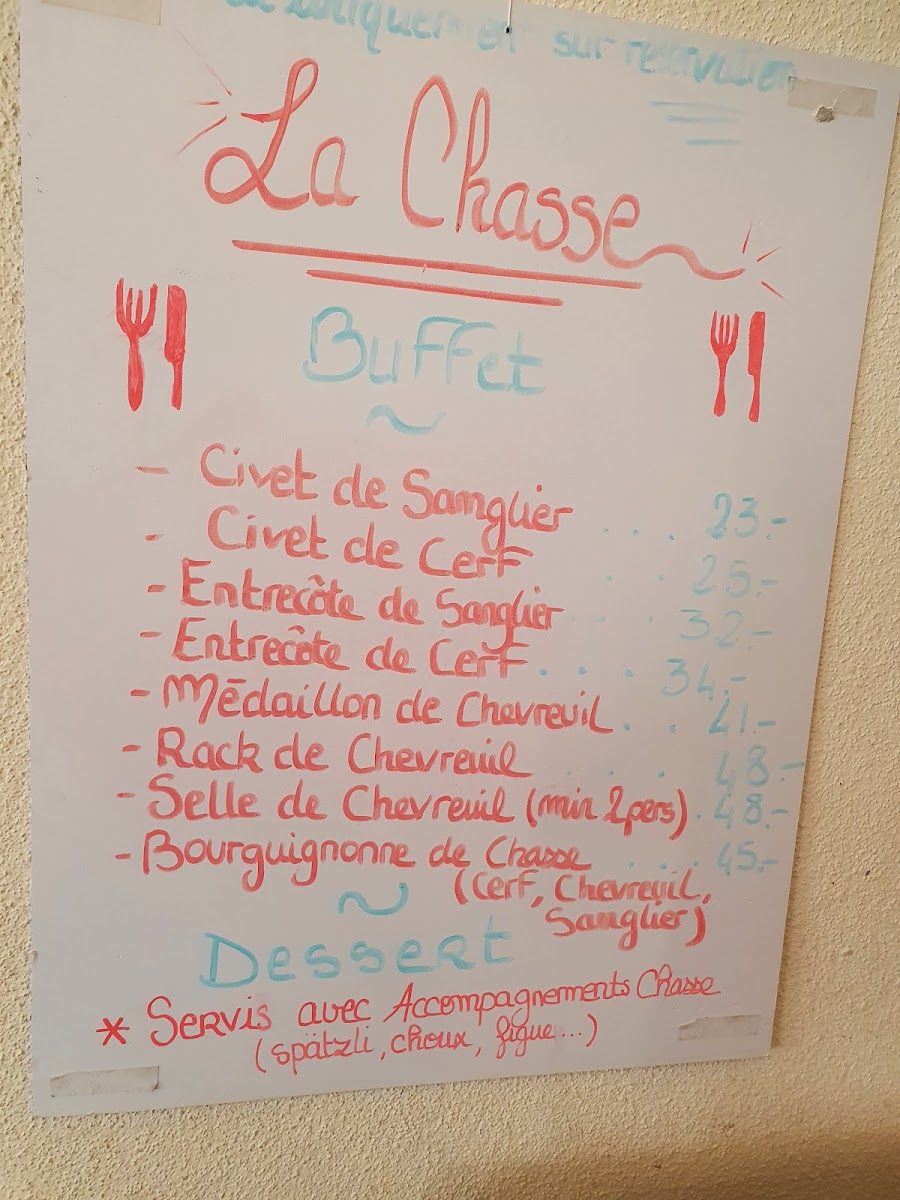 uniquement sur reservation
La Chasse
Buffet
~
- Civet de Sanglier . . . . 23.-
- Civet de Cerf . . 25.-
- Entrecôte de Sanglier . . . 32.-
- Entrecôte de Cerf . . . . 34.-
- Médaillon de Chevreuil . . . 41.-
- Rack de Chevreuil . . . . 48.-
- Selle de Chevreuil (min 2pers) . 48.-
- Bourguignonne de Chasse . . . . 45.-
(Cerf, Chevreuil,
Sanglier)
~
Dessert
* Servis avec Accompagnements Chasse
(spätzli, choux, figue...)